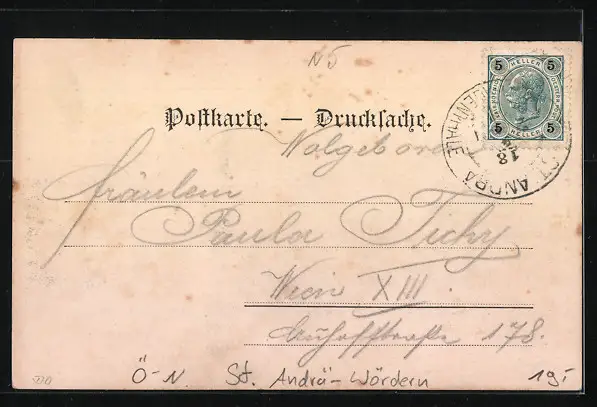 N5
5 HELLER 5
5 HELLER 5
ST. ANDRÄ
18
Postkarte. — Drucksache.
Wolgeboren
Fräulein
Paula Tichy
Wien XIII.
Auhofstraße 178.
Ö-N. St. Andrä-Wördern 19,-